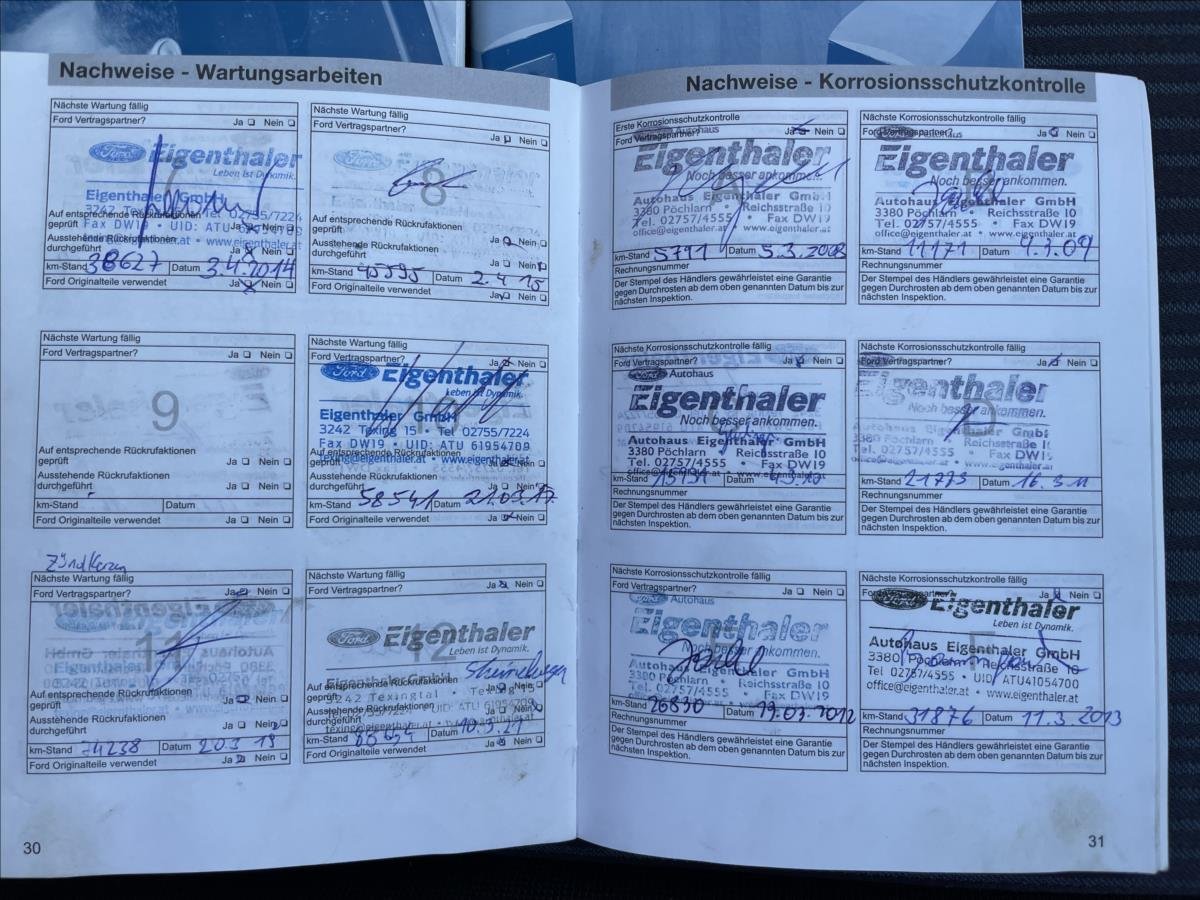 Nachweise - Wartungsarbeiten
Nächste Wartung fällig
Ford Vertragspartner? Ja Nein
Ford Eigenthaler
Leben ist Dynamik.
Eigenthaler GmbH
3242 Tel 02755/7224
Auf entsprechende Rückrufaktionen
geprüft Ja
Fax DW19 • UID: ATU
Ausstehende Rückrufaktionen
durchgeführt Ja
www.eigenthaler.at
km-Stand 38627 Datum 3.4.2014
Ford Originalteile verwendet Ja Nein
Nächste Wartung fällig
Ford Vertragspartner? Ja Nein
8
Auf entsprechende Rückrufaktionen
geprüft Ja Nein
Ausstehende Rückrufaktionen
durchgeführt Ja Nein
km-Stand 45595 Datum 2.4.15
Ford Originalteile verwendet Ja Nein
Nächste Wartung fällig
Ford Vertragspartner? Ja Nein
9
Auf entsprechende Rückrufaktionen
geprüft Ja Nein
Ausstehende Rückrufaktionen
durchgeführt Ja Nein
km-Stand Datum
Ford Originalteile verwendet Ja Nein
Nächste Wartung fällig
Ford Vertragspartner? Ja Nein
Ford Eigenthaler
Leben ist Dynamik.
Eigenthaler GmbH
3242 Texing 15 Tel 02755/7224
Fax DW19 • UID: ATU 61954709
texing@eigenthaler.at • www.eigenthaler.at
Ausstehende Rückrufaktionen
durchgeführt Ja Nein
km-Stand 58541 Datum 21.03.17
Ford Originalteile verwendet Ja Nein
Zündkerzen
Nächste Wartung fällig
Ford Vertragspartner? Ja Nein
11
Auf entsprechende Rückrufaktionen
geprüft Ja Nein
Ausstehende Rückrufaktionen
durchgeführt Ja Nein
km-Stand 74238 Datum 20.3.19
Ford Originalteile verwendet Ja Nein
Nächste Wartung fällig
Ford Vertragspartner? Ja Nein
Ford Eigenthaler
12
Auf entsprechende Rückrufaktionen
geprüft Ja Nein
3242 Texingtal
Ausstehende Rückrufaktionen
durchgeführt
texing@eigenthaler.at
km-Stand Datum 10.3.21
Ford Originalteile verwendet Ja Nein
30
Nachweise - Korrosionsschutzkontrolle
Erste Korrosionsschutzkontrolle
Ford Vertragspartner? Ja Nein
Autohaus
Eigenthaler
Noch besser ankommen.
Autohaus Eigenthaler GmbH
3380 Pöchlarn • Reichsstraße 10
Tel. 02757/4555 • Fax DW19
office@eigenthaler.at • www.eigenthaler.at
km-Stand 5791 Datum 5.3.2008
Rechnungsnummer
Der Stempel des Händlers gewährleistet eine Garantie
gegen Durchrosten ab dem oben genannten Datum bis zur
nächsten Inspektion.
Nächste Korrosionsschutzkontrolle fällig
Ford Vertragspartner? Ja Nein
Eigenthaler
Noch besser ankommen.
Autohaus Eigenthaler GmbH
3380 Pöchlarn • Reichsstraße 10
Tel. 02757/4555 • Fax DW19
office@eigenthaler.at • www.eigenthaler.at
km-Stand 11171 Datum 4.3.09
Rechnungsnummer
Der Stempel des Händlers gewährleistet eine Garantie
gegen Durchrosten ab dem oben genannten Datum bis zur
nächsten Inspektion.
Nächste Korrosionsschutzkontrolle fällig
Ford Vertragspartner? Ja Nein
Ford Autohaus
Eigenthaler
Noch besser ankommen.
Autohaus Eigenthaler GmbH
3380 Pöchlarn • Reichsstraße 10
Tel. 02757/4555 • Fax DW19
km-Stand Datum
Rechnungsnummer
Der Stempel des Händlers gewährleistet eine Garantie
gegen Durchrosten ab dem oben genannten Datum bis zur
nächsten Inspektion.
Nächste Korrosionsschutzkontrolle fällig
Ford Vertragspartner? Ja Nein
Eigenthaler
Noch besser ankommen.
Autohaus Eigenthaler GmbH
3380 Pöchlarn Reichsstraße 10
Tel. 02757/4555 • Fax DW19
km-Stand 21773 Datum 16.3.11
Rechnungsnummer
Der Stempel des Händlers gewährleistet eine Garantie
gegen Durchrosten ab dem oben genannten Datum bis zur
nächsten Inspektion.
Nächste Korrosionsschutzkontrolle fällig
Ford Vertragspartner? Ja Nein
Autohaus
Eigenthaler
Noch besser ankommen.
Autohaus Eigenthaler GmbH
3380 Pöchlarn • Reichsstraße 10
Tel. 02757/4555 • Fax DW19
km-Stand 26830 Datum 19.03.2012
Rechnungsnummer
Der Stempel des Händlers gewährleistet eine Garantie
gegen Durchrosten ab dem oben genannten Datum bis zur
nächsten Inspektion.
Nächste Korrosionsschutzkontrolle fällig
Ford Vertragspartner? Ja Nein
Ford Eigenthaler
Leben ist Dynamik.
Autohaus Eigenthaler GmbH
3380 Pöchlarn Reichsstraße 10
Tel 02757/4555 • UID: ATU41054700
office@eigenthaler.at • www.eigenthaler.at
km-Stand 31876 Datum 11.3.2013
Rechnungsnummer
Der Stempel des Händlers gewährleistet eine Garantie
gegen Durchrosten ab dem oben genannten Datum bis zur
nächsten Inspektion.
31